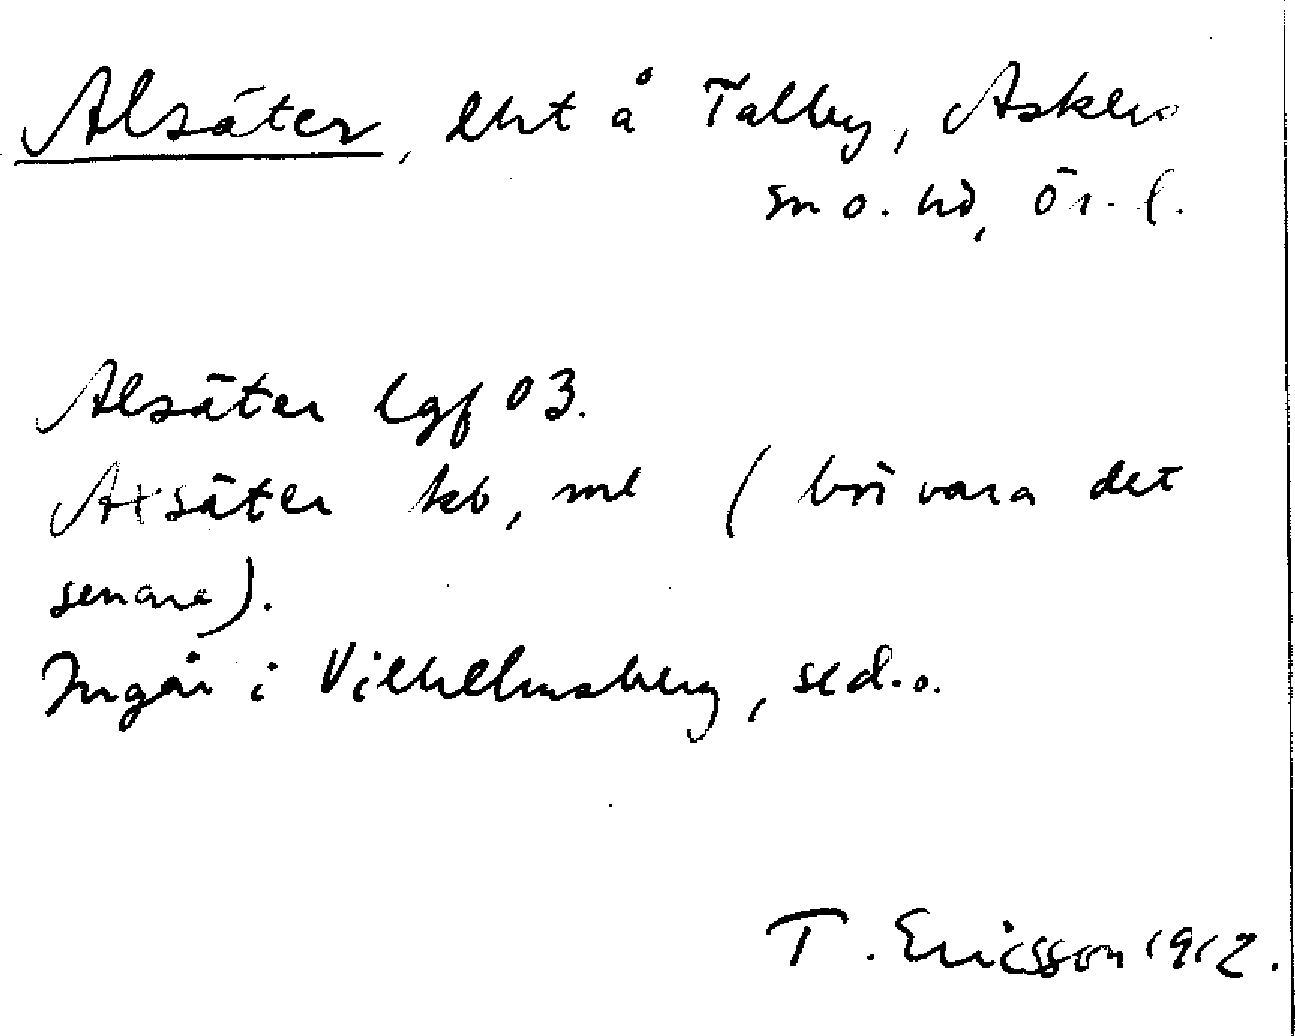 Alsäter, lht å Talby, Askers
sn o. hd, Ör. l.
Alsäter lgf 03.
Axsäter kb, ml (bör vara det
senare).
Ingår i Vilhelmsberg, se d. o.
T. Ericsson 1912.